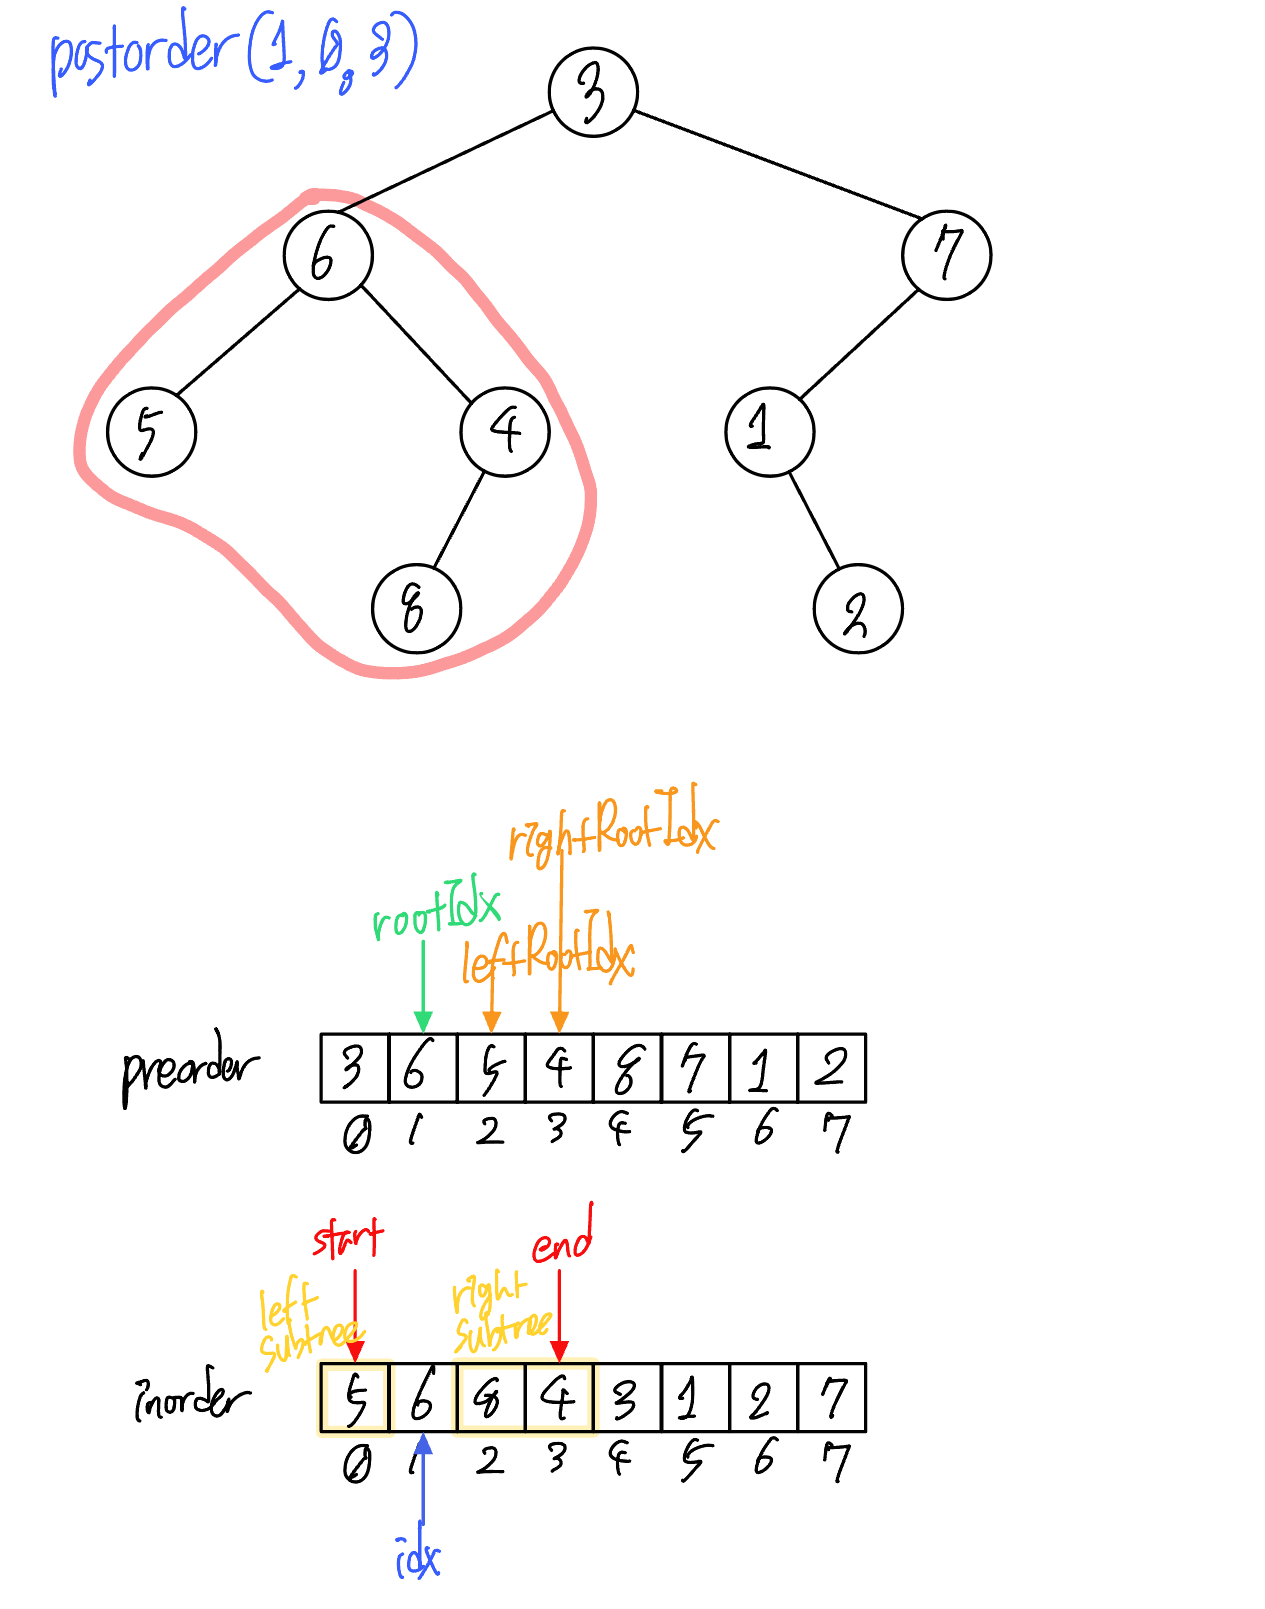 postorder(1, 0, 3)
3
6
7
5
4
1
8
2
rightRootIdx
rootIdx
leftRootIdx
preorder 3 6 5 4 8 7 1 2
0 1 2 3 4 5 6 7
start
end
left
subtree
right
subtree
inorder 5 6 8 4 3 1 2 7
0 1 2 3 4 5 6 7
idx